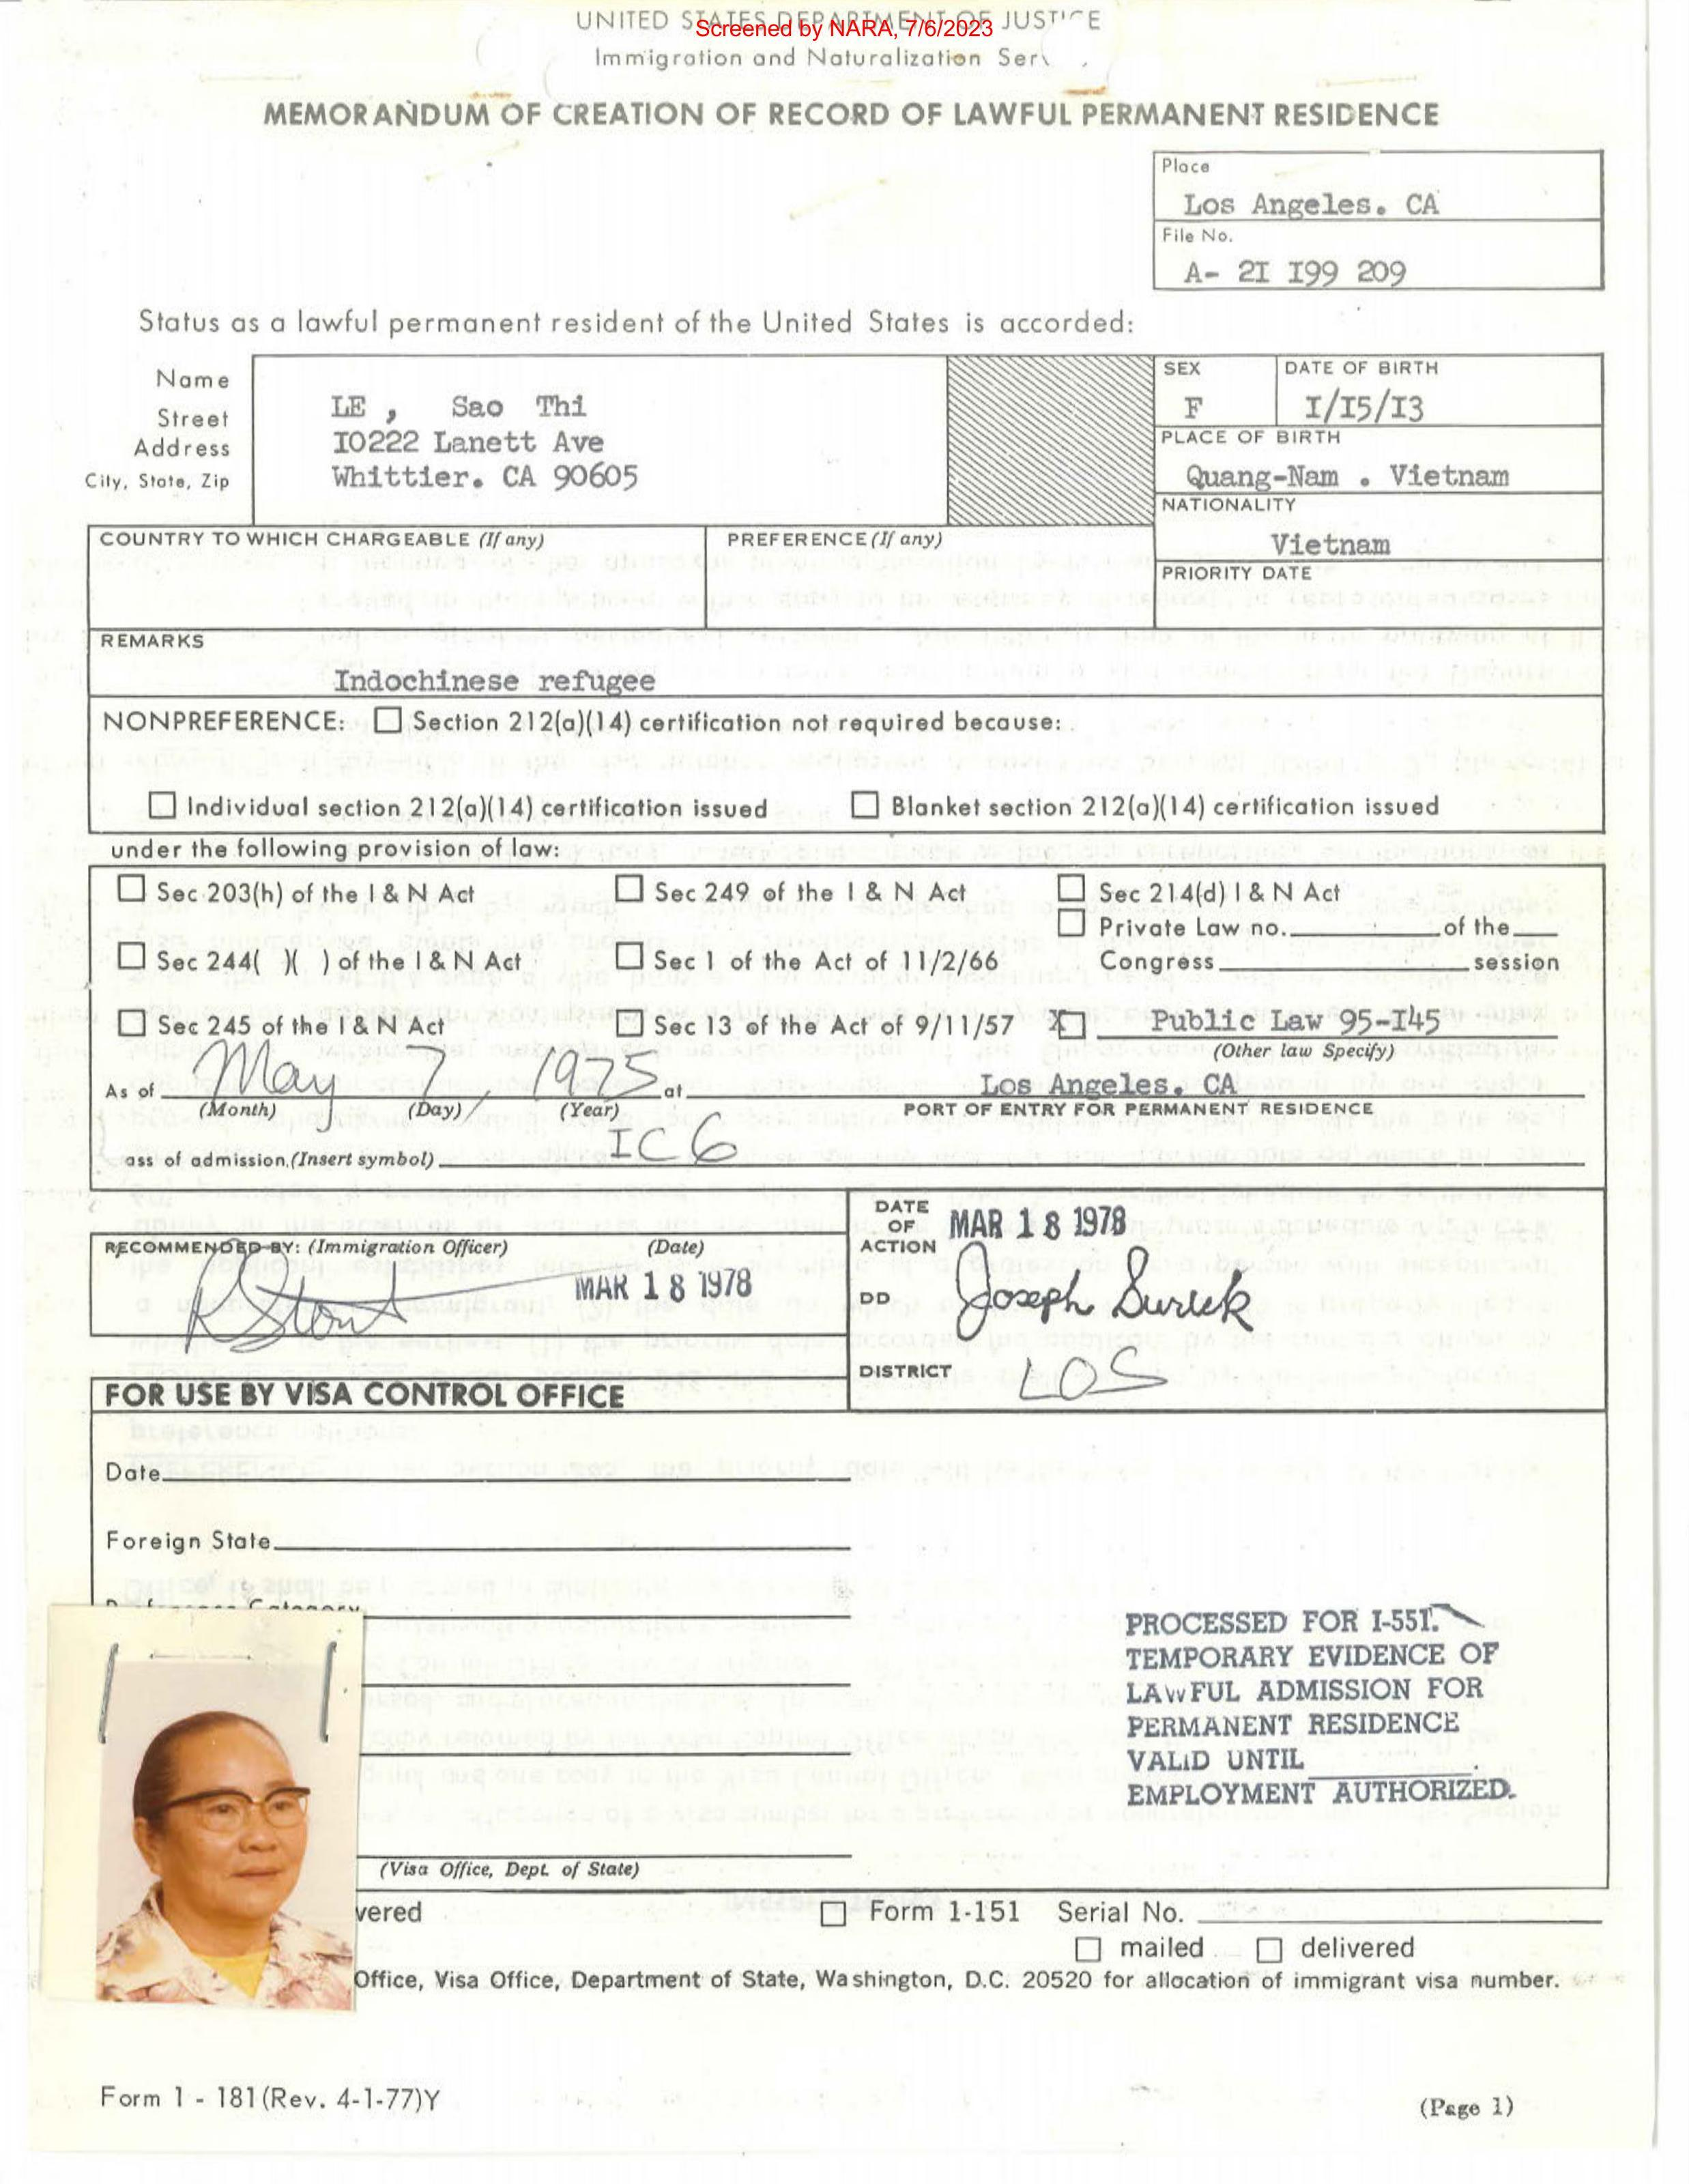 UNITED STATES DEPARTMENT OF JUSTICE
Screened by NARA, 7/6/2023
Immigration and Naturalization Serv
MEMORANDUM OF CREATION OF RECORD OF LAWFUL PERMANENT RESIDENCE
Place
Los Angeles. CA
File No.
A- 2I I99 209
Status as a lawful permanent resident of the United States is accorded:
Name
Street
Address
City, State, Zip
LE , Sao Thi
I0222 Lanett Ave
Whittier. CA 90605
SEX
F
DATE OF BIRTH
I/I5/I3
PLACE OF BIRTH
Quang-Nam . Vietnam
NATIONALITY
Vietnam
PRIORITY DATE
COUNTRY TO WHICH CHARGEABLE (If any)
PREFERENCE (If any)
REMARKS
Indochinese refugee
NONPREFERENCE: Section 212(a)(14) certification not required because:
Individual section 212(a)(14) certification issued Blanket section 212(a)(14) certification issued
under the following provision of law:
Sec 203(h) of the I & N Act Sec 249 of the I & N Act Sec 214(d) I & N Act
Private Law no. of the
Sec 244( )( ) of the I & N Act Sec 1 of the Act of 11/2/66 Congress session
Sec 245 of the I & N Act Sec 13 of the Act of 9/11/57 X Public Law 95-I45
(Other law Specify)
As of May 7, 1975 at Los Angeles. CA
(Month) (Day) (Year) PORT OF ENTRY FOR PERMANENT RESIDENCE
ass of admission.(Insert symbol) IC 6
RECOMMENDED BY: (Immigration Officer) (Date)
R Stout MAR 18 1978
DATE
OF
ACTION
MAR 18 1978
DD Joseph
DISTRICT LOS
FOR USE BY VISA CONTROL OFFICE
Date
Foreign State
Category
(Visa Office, Dept. of State)
PROCESSED FOR I-551.
TEMPORARY EVIDENCE OF
LAWFUL ADMISSION FOR
PERMANENT RESIDENCE
VALID UNTIL .
EMPLOYMENT AUTHORIZED.
vered Form 1-151 Serial No.
mailed delivered
Office, Visa Office, Department of State, Washington, D.C. 20520 for allocation of immigrant visa number.
Form 1 - 181 (Rev. 4-1-77)Y
(Page 1)